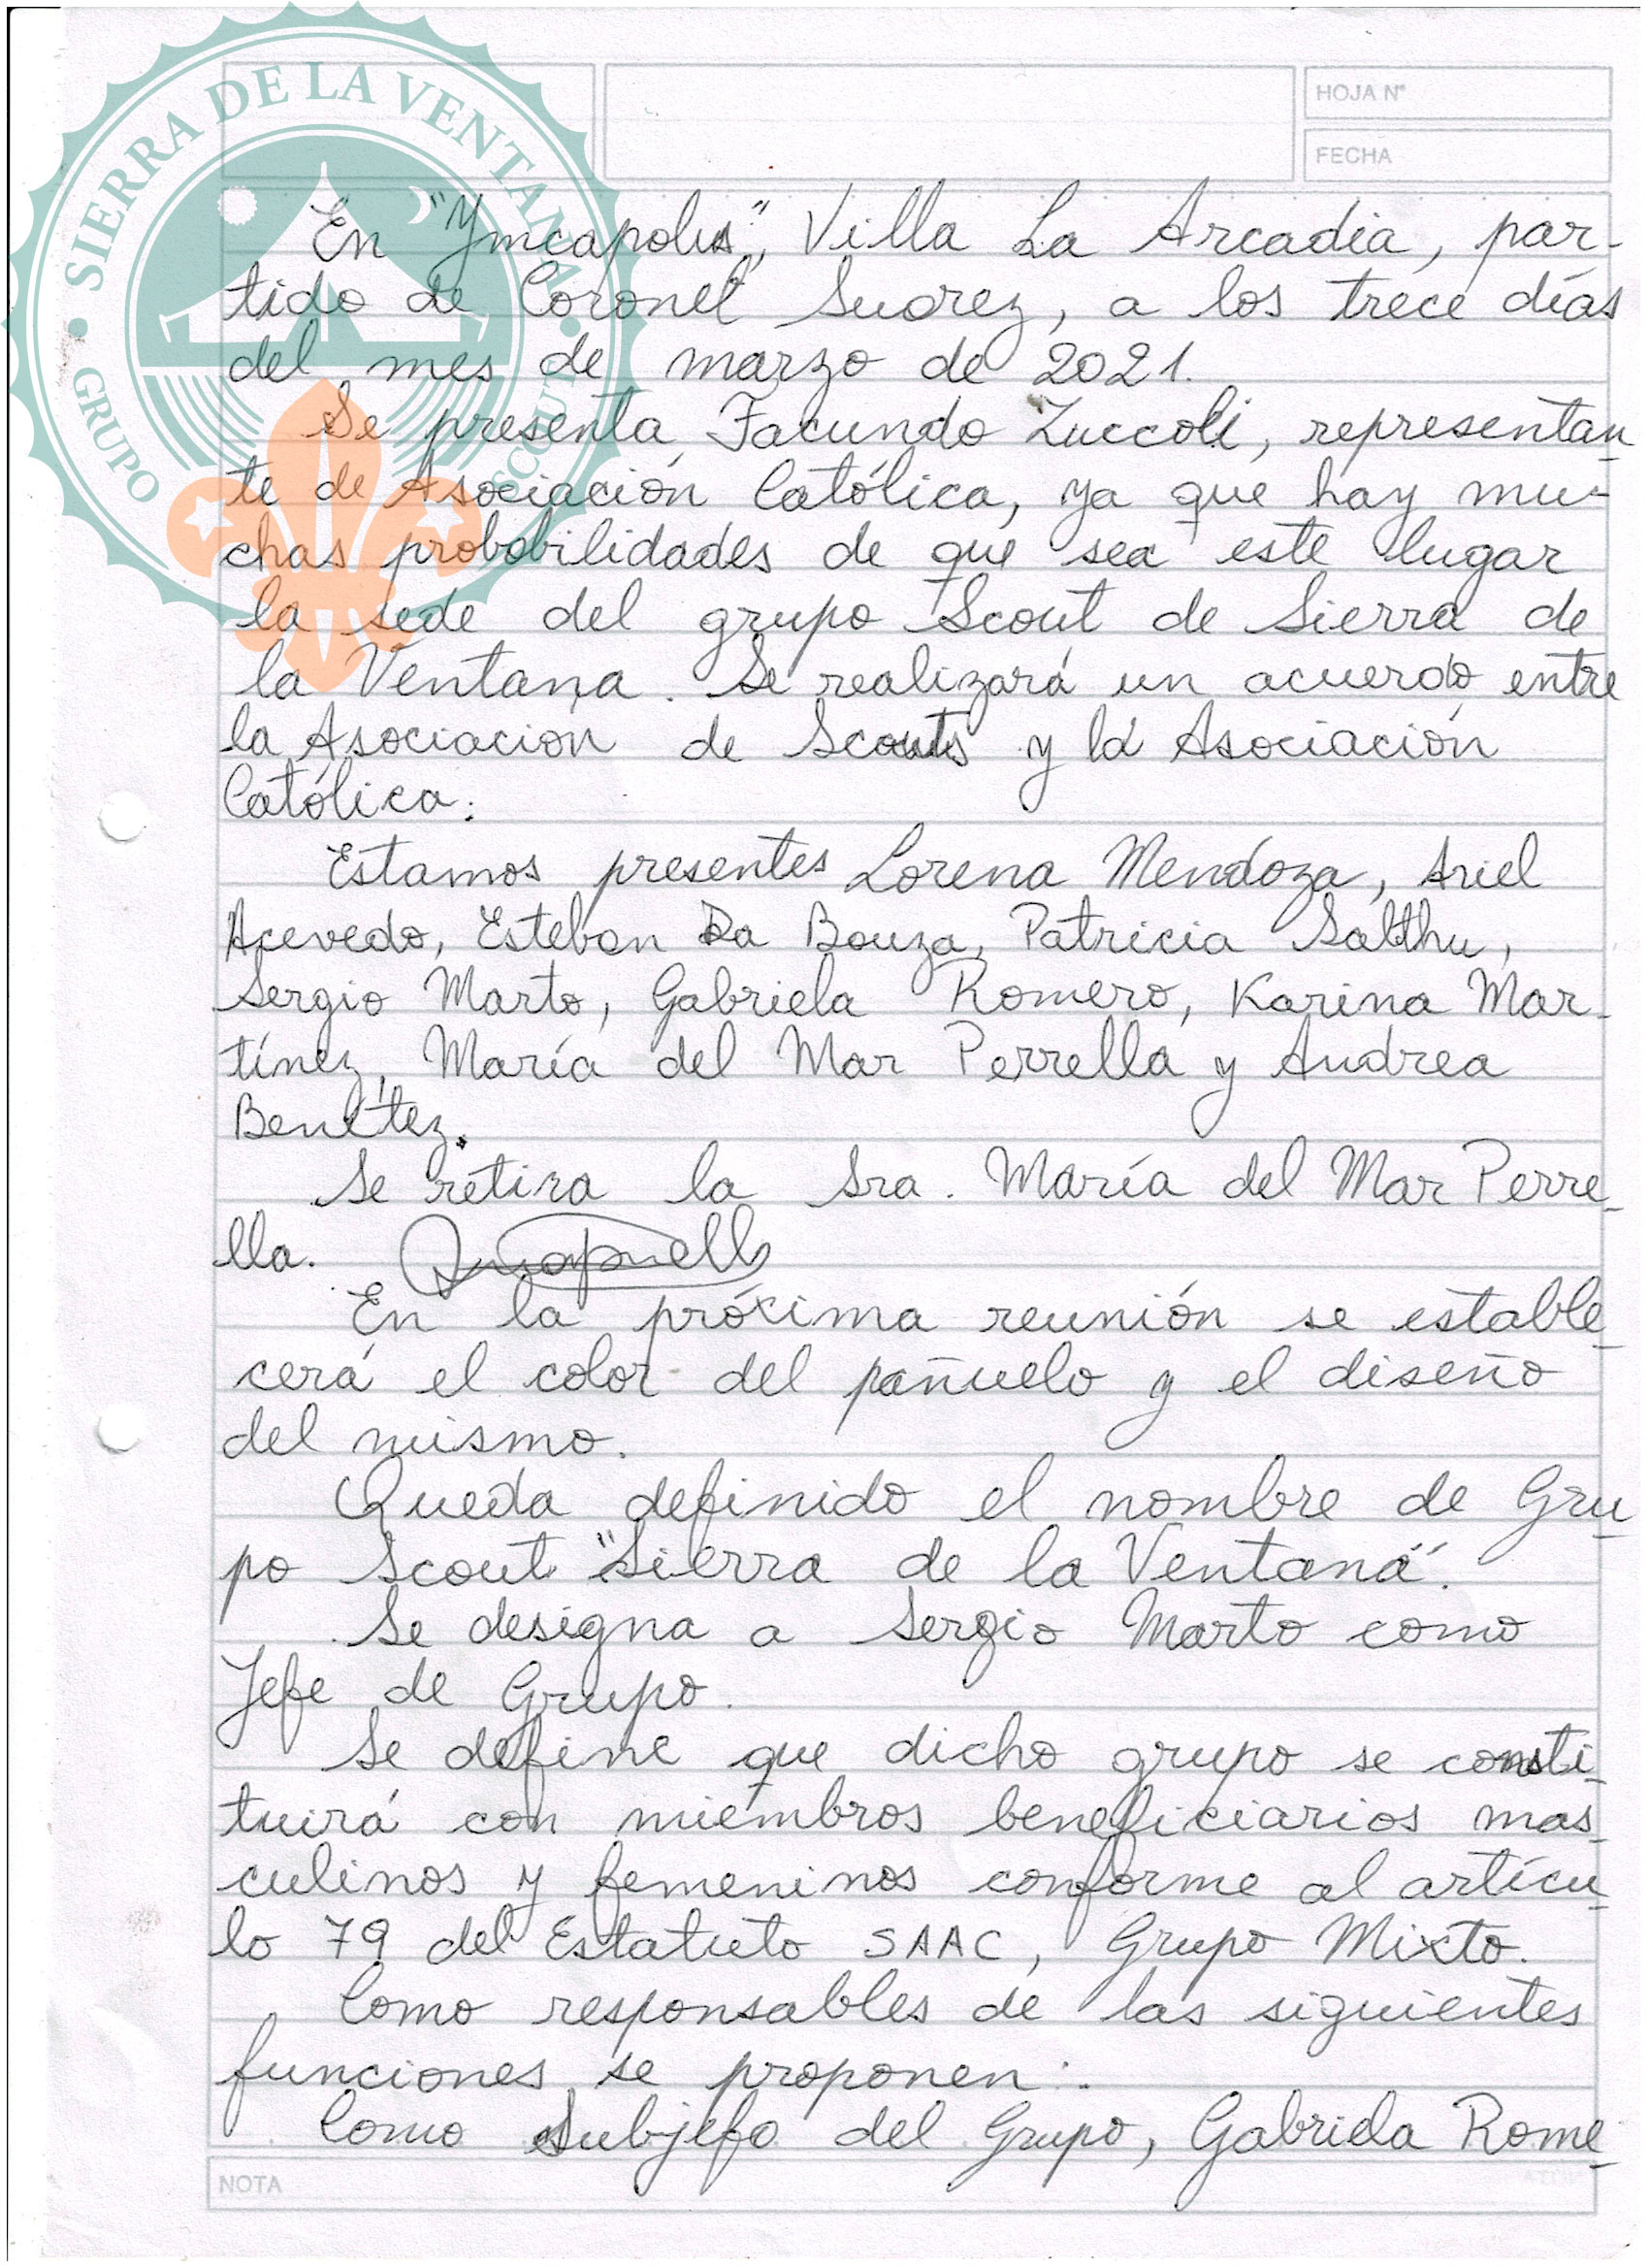 SIERRA DE LA VENTANA
GRUPO SCOUT
HOJA N°
FECHA
En "Ymcapolis", Villa La Arcadia, par-
tido de Coronel Suarez, a los trece días
del mes de marzo de 2021.
Se presenta Facundo Zuccoli, representan
te de Asociación Católica, ya que hay mu-
chas probabilidades de que sea este lugar
la sede del grupo Scout de Sierra de
la Ventana. Se realizará un acuerdo entre
la Asociación de Scouts y la Asociación
Católica.
Estamos presentes Lorena Mendoza, Ariel
Acevedo, Esteban Da Bouza, Patricia Salthu,
Sergio Marto, Gabriela Romero, Karina Mar-
tínez, María del Mar Perrella y Andrea
Benítez.
Se retira la Sra. María del Mar Perre
lla.
En la próxima reunión se estable
cerá el color del pañuelo y el diseño
del mismo.
Queda definido el nombre de Gru
po Scout "Sierra de la Ventana".
Se designa a Sergio Marto como
Jefe de Grupo.
Se define que dicho grupo se consti
tuirá con miembros beneficiarios mas
culinos y femeninos conforme al artícu
lo 79 del Estatuto SAAC, Grupo Mixto.
Como responsables de las siguientes
funciones se proponen:
Como Subjefa del Grupo, Gabriela Rome
NOTA